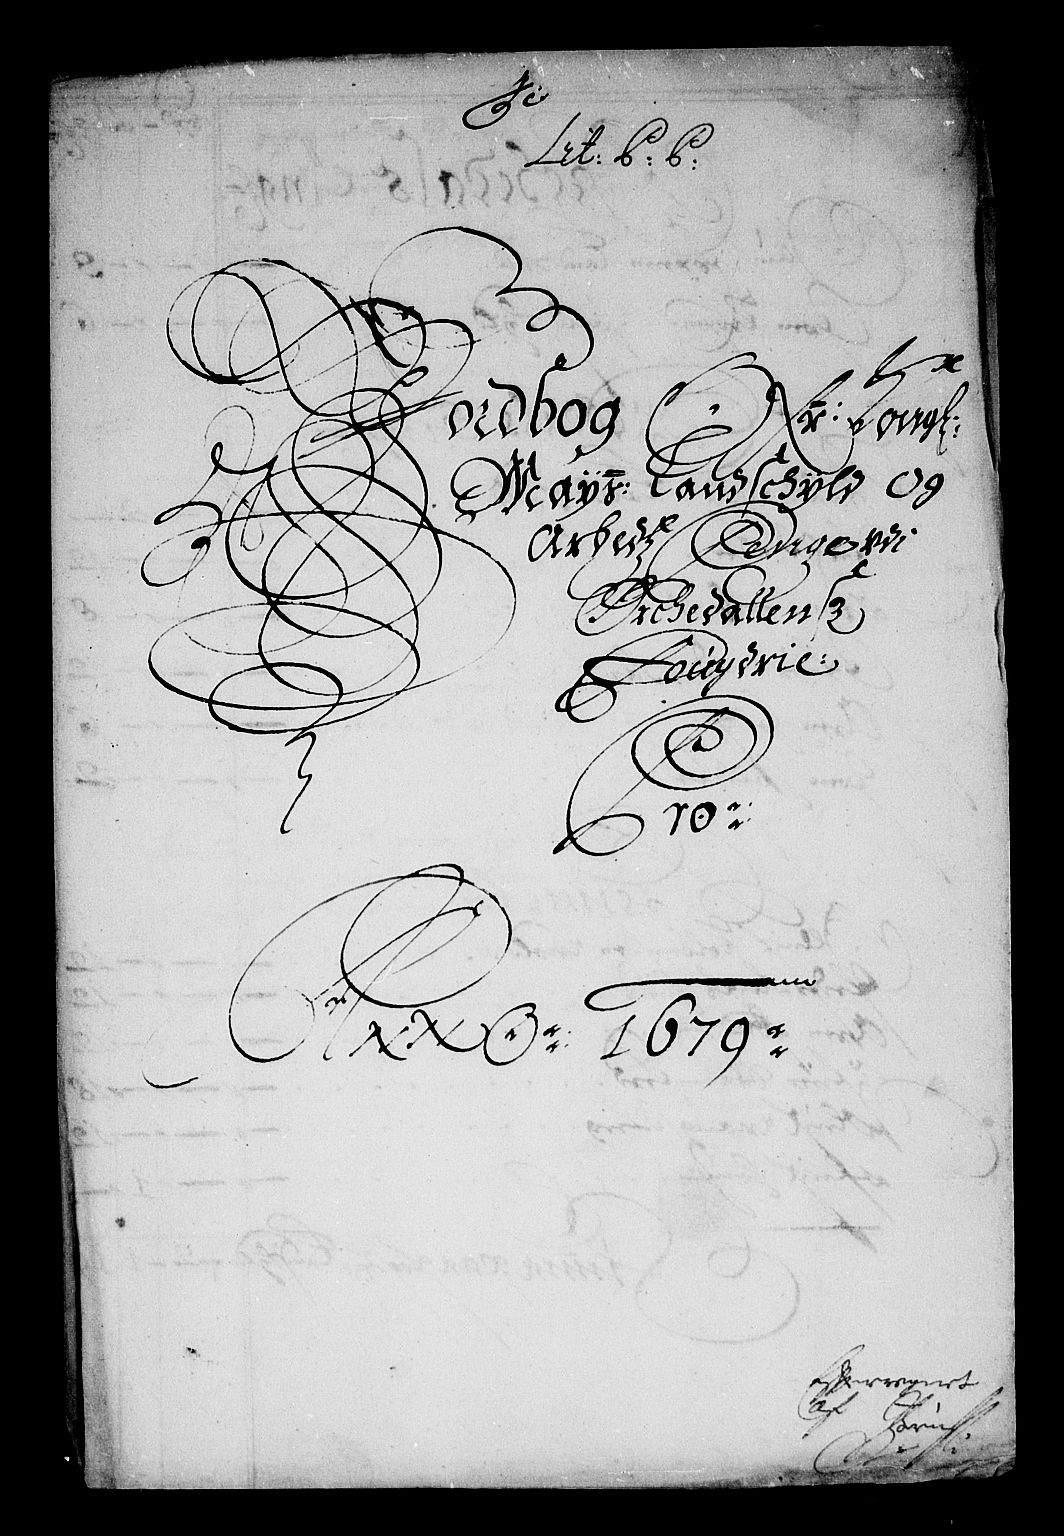 Lit: B: B:
Jordbog Ofr: Kongl:
Mayts: Landschyld og
Arbedz Pengers vdi
Orchedallens
Fougderie:
Pro
Anno: 1679